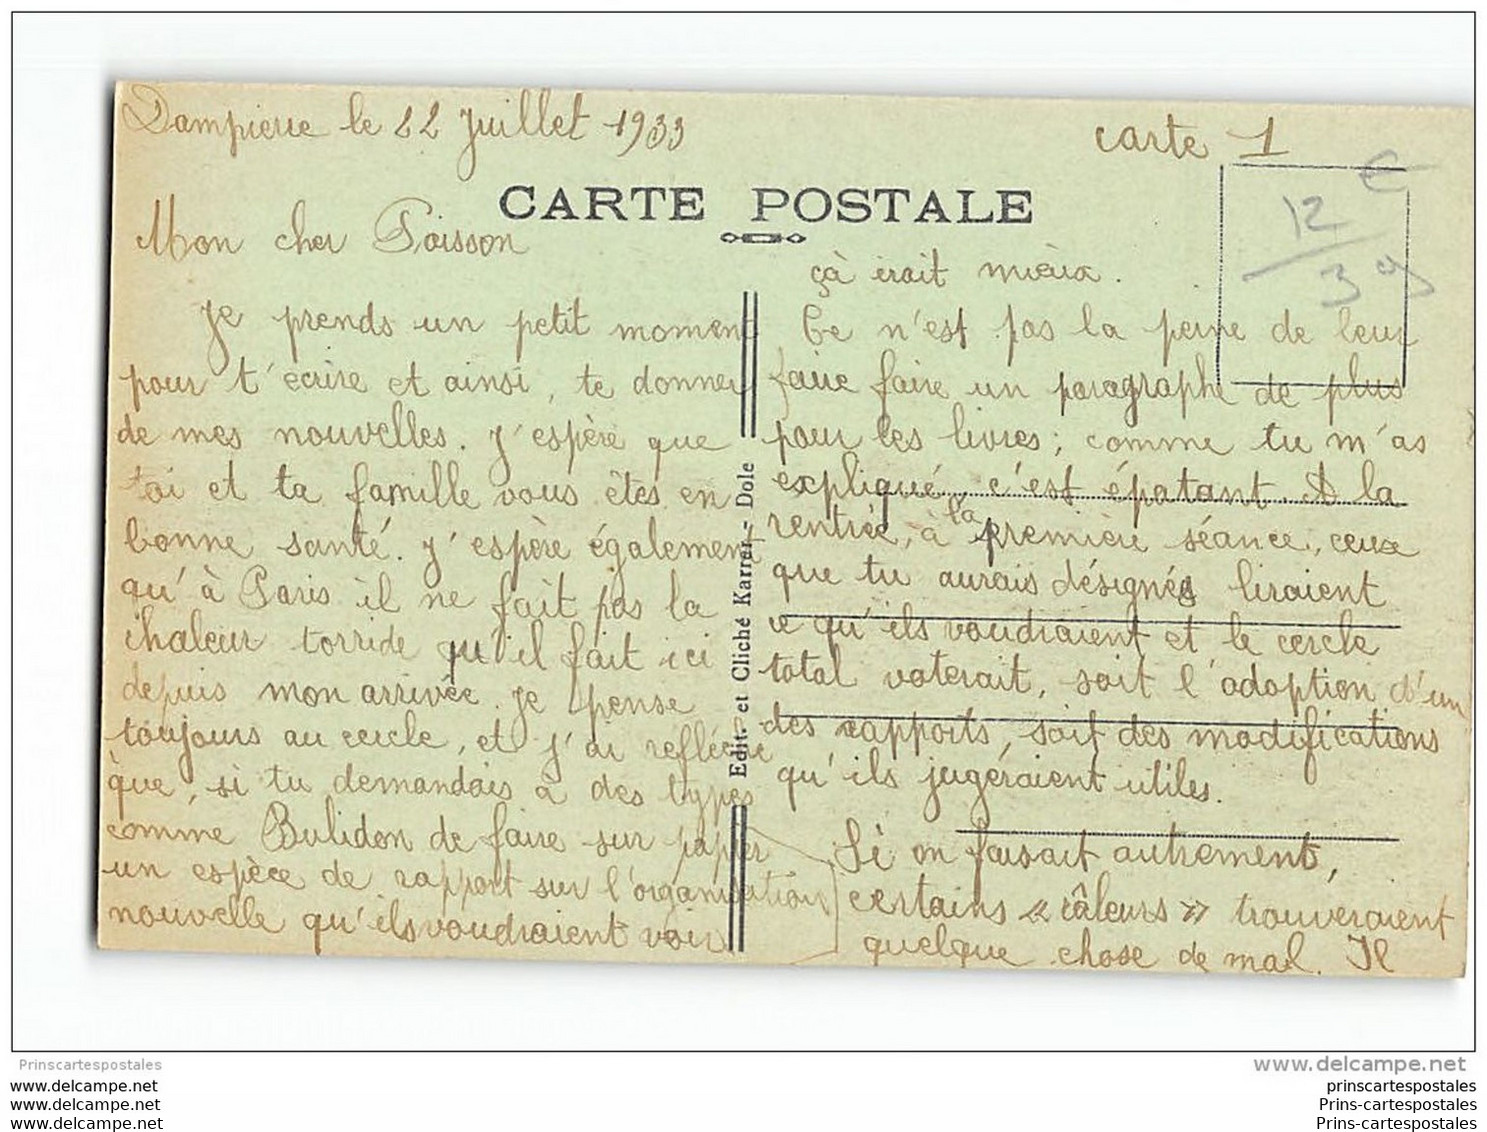 Dampierre le 22 Juillet 1933
carte 1
CARTE POSTALE
12
39
Mon cher Poisson
Je prends un petit moment
pour t'écrire et ainsi, te donner
de mes nouvelles. J'espère que
toi et ta famille vous êtes en
bonne santé. J'espère également
qu'à Paris il ne fait pas la
chaleur torride qu'il fait ici
depuis mon arrivée. Je pense
toujours au cercle, et j'ai refléchi
que, si tu demandais à des types
comme Bulidon de faire sur papier
un espèce de rapport sur l'organisation
nouvelle qu'ils voudraient voir
Edit. et Cliché Karrer - Dole
çà irait mieux.
Ce n'est pas la peine de leur
faire faire un paragraphe de plus
pour les livres; comme tu m'as
expliqué, c'est épatant. A la
rentrée, à la première séance, ceux
que tu aurais désignés liraient
ce qu'ils voudraient et le cercle
total voterait, soit l'adoption d'un
des rapports, soit des modifications
qu'ils jugeraient utiles.
Si on faisait autrement,
certains « câleurs » trouveraient
quelque chose de mal. Il
Prinscartespostales
www.delcampe.net
www.delcampe.net
www.delcampe.net
www.delcampe.net
prinscartespostales
Prins-cartespostales
Prins-cartespostales